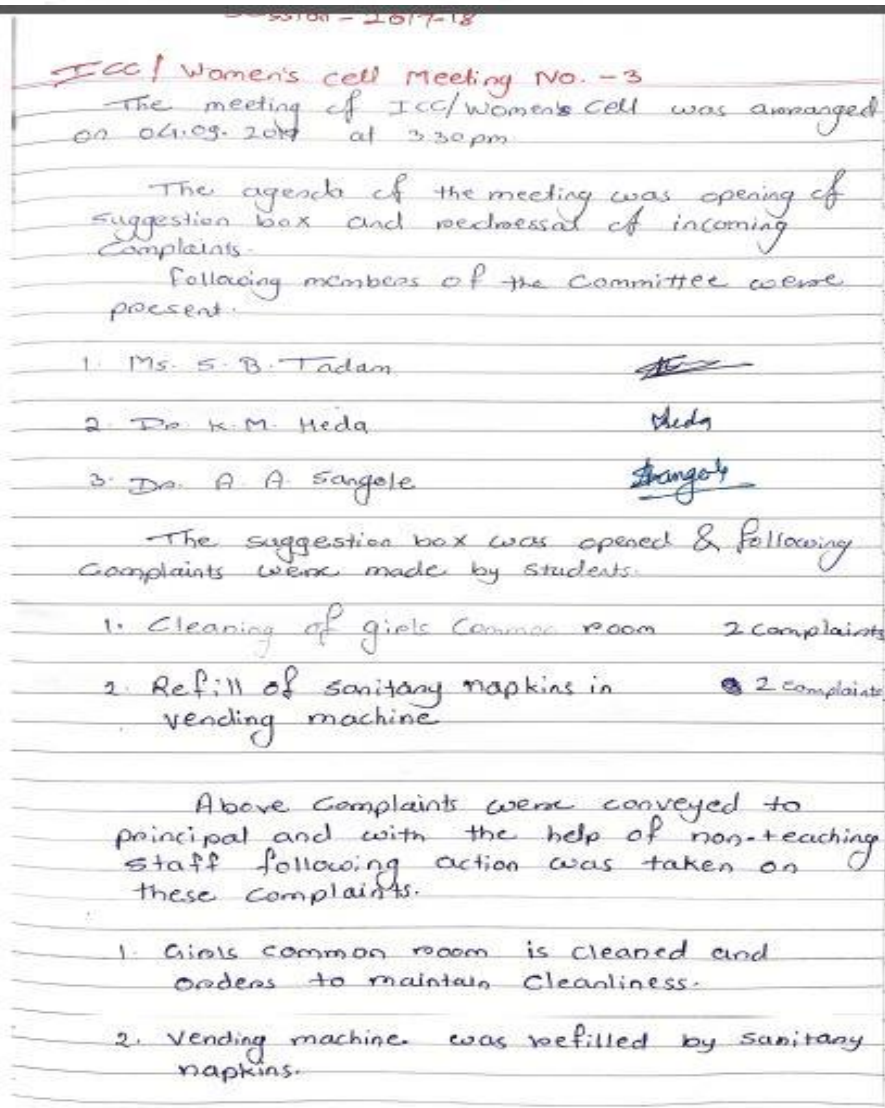 Session - 2017-18
ICC/ Women's cell Meeting No. - 3
The meeting of ICC/Women's Cell was arranged
on 04.09. at 330pm
The agenda of the meeting was opening of
suggestion box and redressal of incoming
Complaints.
Following members of the Committee were
present.
1. Ms. S. B. Tadam
2. Dr. K. M. Heda Heda
3. Dr. A. A. Sangole Sangole
The suggestion box was opened & following
Complaints were made by students.
1. Cleaning of girls Common room 2 complaints
2. Refill of sanitary napkins in 2 complaints
vending machine
Above Complaints were conveyed to
principal and with the help of non-teaching
staff following action was taken on
these complaints.
1. Girls common room is cleaned and
orders to maintain Cleanliness.
2. Vending machine was refilled by sanitary
napkins.